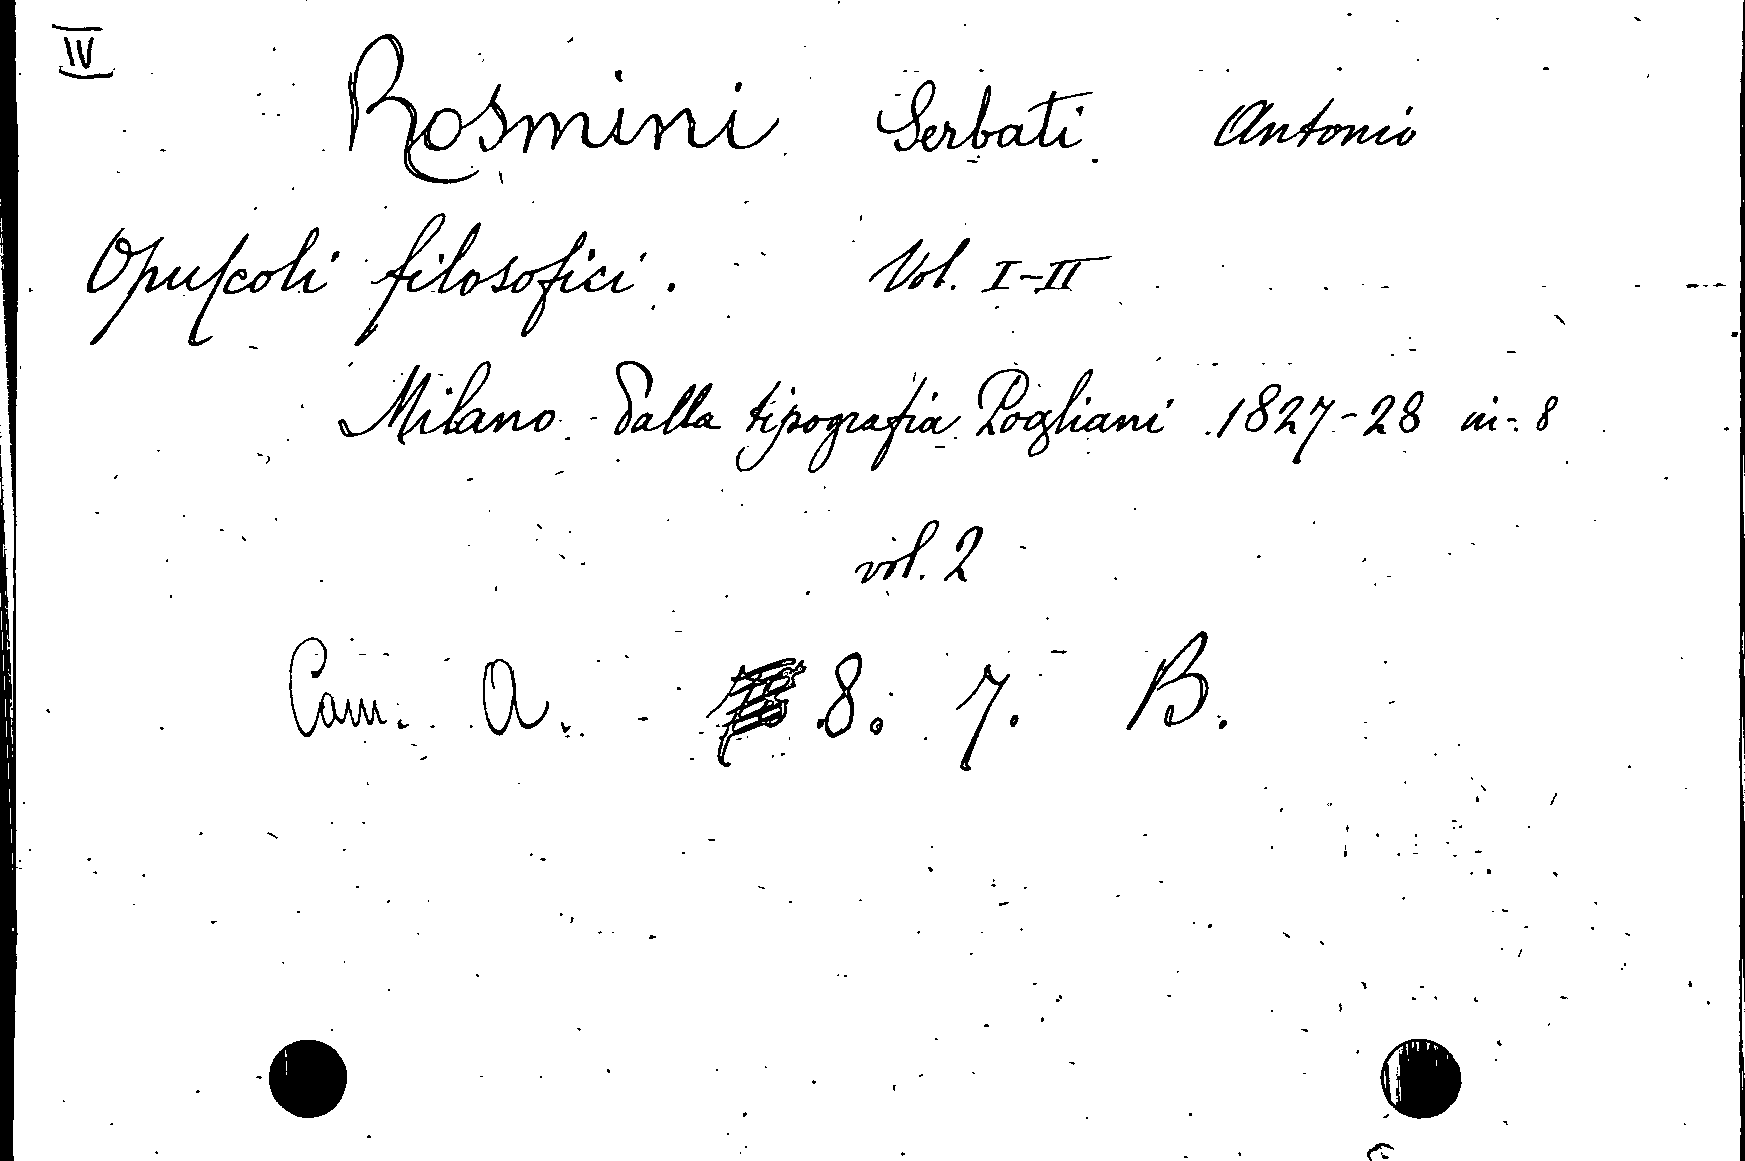 IV
Rosmini Serbati Antonio
Opuscoli filosofici. Vol. I-II
Milano dalla tipografia Pogliani 1827-28 in-8
vol. 2
Cam. A. 8. 7. B.